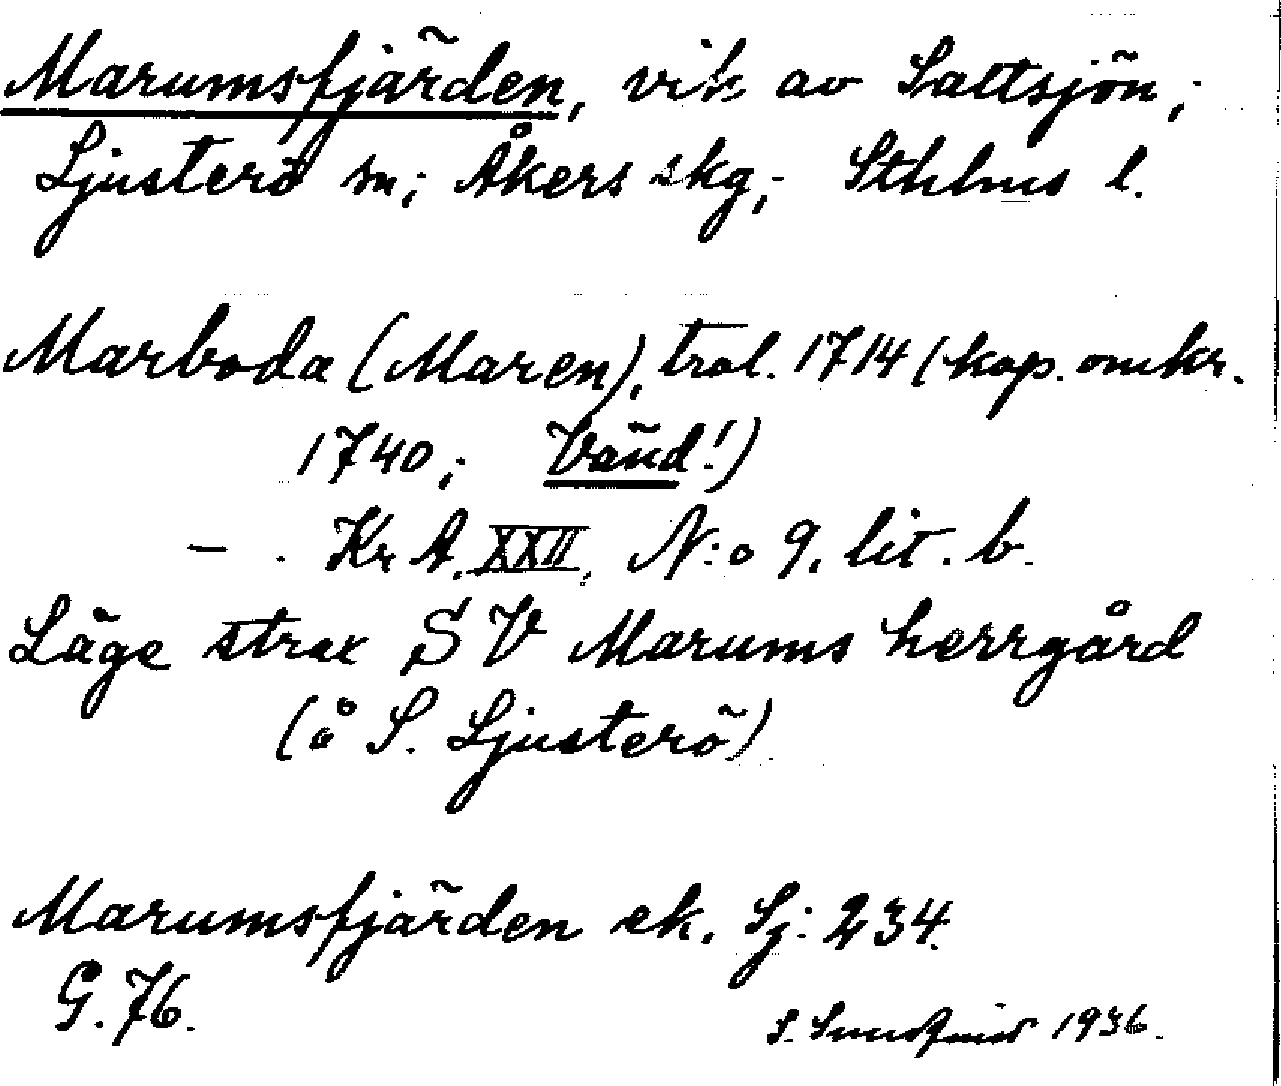 Marumsfjärden, vik av Saltsjön;
Ljusterö sn; Åkers skg; Sthlms l.
Marboda (Maren), trol. 1714 (kop. omkr.
1740; Vänd!)
— . Kr A. XXII, N:o 9. lit. b.
Läge strax SV Marums herrgård
(å S. Ljusterö)
Marumsfjärden ek. Lj: 234.
G. 76.
S. 1936.